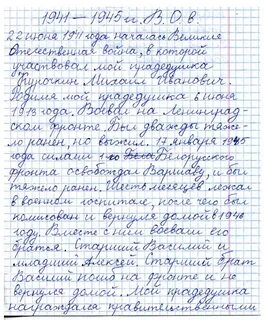 1941 – 1945 гг. В. О. в.
22 июня 1941 года началась Великая
Отечественная война, в которой
участвовал мой прадедушка
Михаил Иванович.
Родился мой прадедушка в июне
1913 года. Воевал на Ленинград-
ском фронте. Был дважды тяже-
ло ранен, но выжил. 17 января 1945
года силами 1-го Бело Белорусского
фронта освобождал Варшаву, и был
тяжело ранен. Шесть месяцев лежал
в военном госпитале, после чего был
комисован и вернулся домой в
году. Вместе с ним воевали его
братья. Старший Василий и
младший Алексей. Старший брат
Василий пошёл на фронте и не
вернулся домой. Мой прадедушка
награждала правительственными